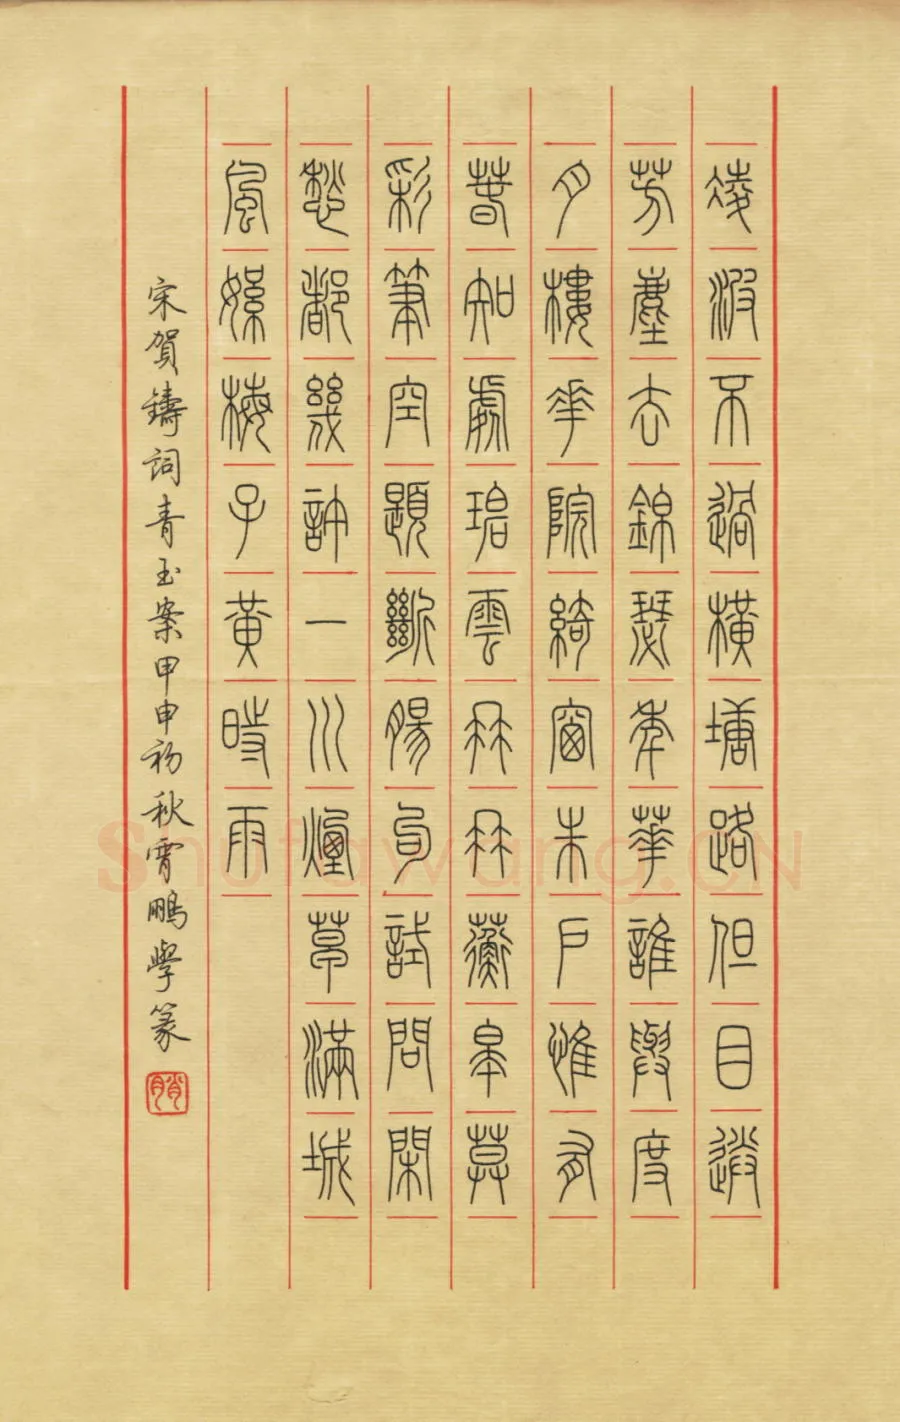 凌波不過橫塘路但目送
芳塵去錦瑟年華誰與度
月樓花院綺窗朱戶惟有
春知處碧雲冉冉蘅皋暮
彩筆空題斷腸句試問閑
愁都幾許一川煙草滿城
風絮梅子黃時雨
宋賀鑄詞青玉案甲申初秋霄鵬學篆
Shufawang.CN